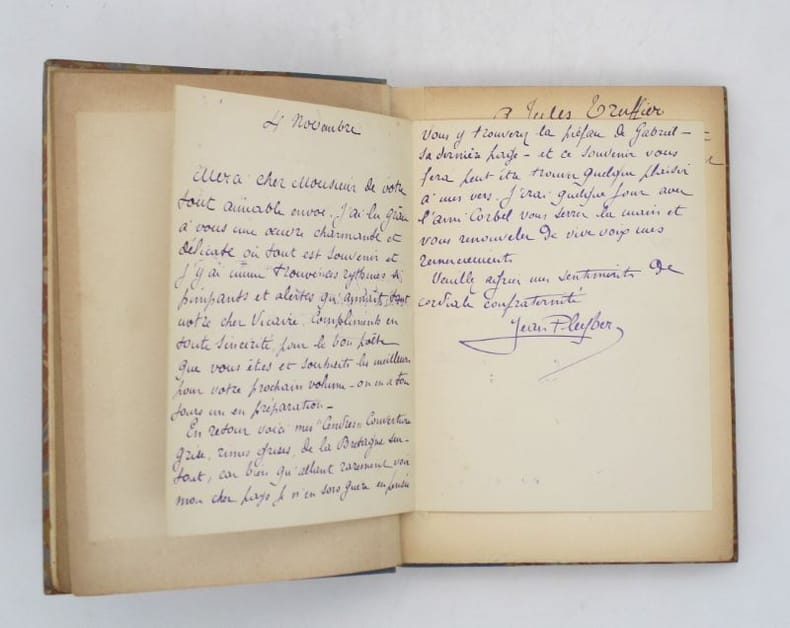 4 Novembre
Merci cher Monsieur de votre
tout aimable envoi. J'ai lu grâce
à vous une œuvre charmante et
délicate où tout est souvenir et
j'y ai même trouvé ces rythmes si
pimpants et alertes qu'aimait tant
notre cher Vicaire. Compliments en
toute sincérité pour le bon poète
que vous êtes et souhaits les meilleurs
pour votre prochain volume - on en a tou
jours un en préparation -
En retour voici mes "Cendres" Couverture
grise, rimes grises, de la Bretagne sur-
tout, car bien qu'allant rarement voir
mon cher pays je n'en sors guère en pensée
à Jules Truffier
Vous y trouverez la préface de Gabriel -
sa dernière page - et ce souvenir vous
fera peut être trouver quelque plaisir
à mes vers. J'irai quelque jour avec
l'ami Corbel vous serrer la main et
vous renouveler de vive voix mes
remerciements.
Veuillez agréer mes sentiments de
cordiale confraternité
Jean Pleyber